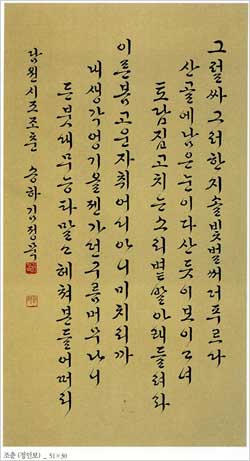 그럴싸그러한지솔빛벌써더푸르다
산골에남은눈이다산듯이보이고녀
토담집고치는소리볕발아래들려라
이른봄고운자취어디아니미치리까
내생각엉기올젠가던구름머무나니
든붓대무능타말고헤쳐본들어떠리
담원시조조춘 송하
조춘 (정인보) _ 51×30